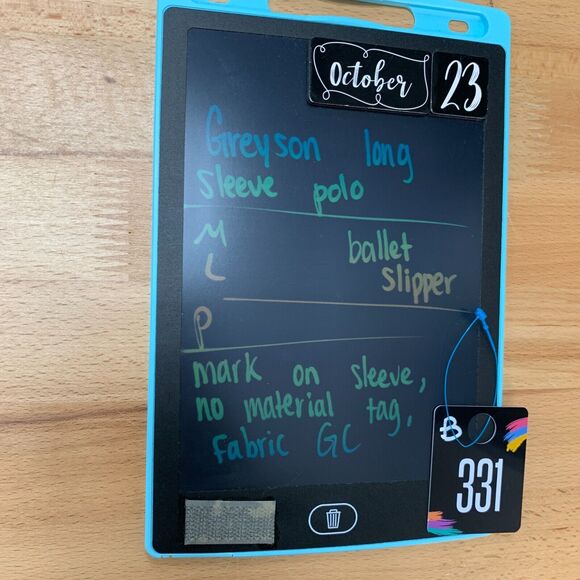 October 23
Greyson long
sleeve polo
M ballet
L slipper
P
mark on sleeve,
no material tag,
Fabric GC
B
331